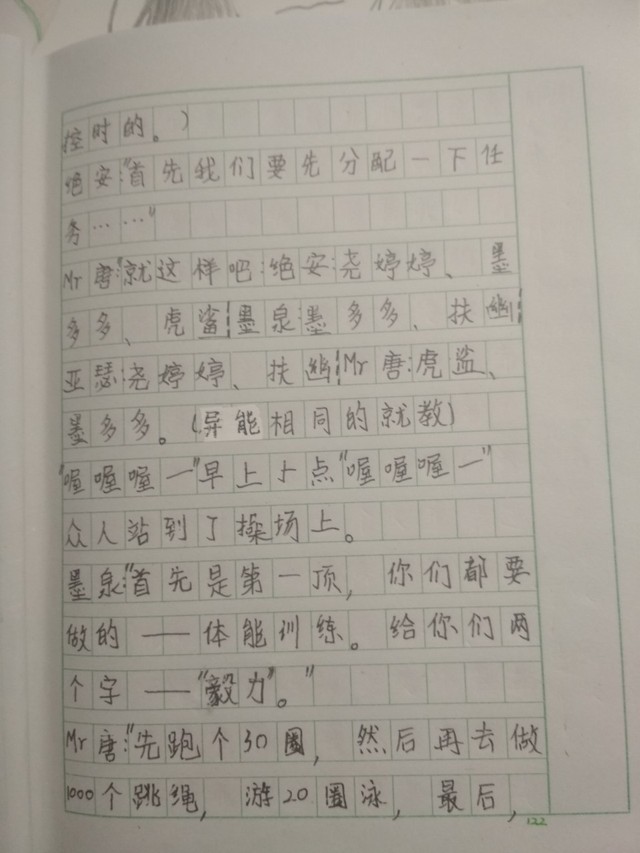 控时的。）
绝安:"首先我们要先分配一下任
务……"
Mr唐:"就这样吧:绝安:尧婷婷、墨
多多、虎鲨¦墨泉:墨多多、扶幽¦
亚瑟:尧婷婷、扶幽¦Mr唐:虎鲨、
墨多多。(异能相同的就教)
"喔喔喔—"早上5点"喔喔喔—"
众人站到了操场上。
墨泉:"首先是第一项，你们都要
做的——体能训练。给你们两
个字——"毅力"。"
Mr唐:"先跑个30圈，然后再去做
1000个跳绳，游20圈泳，最后，
122